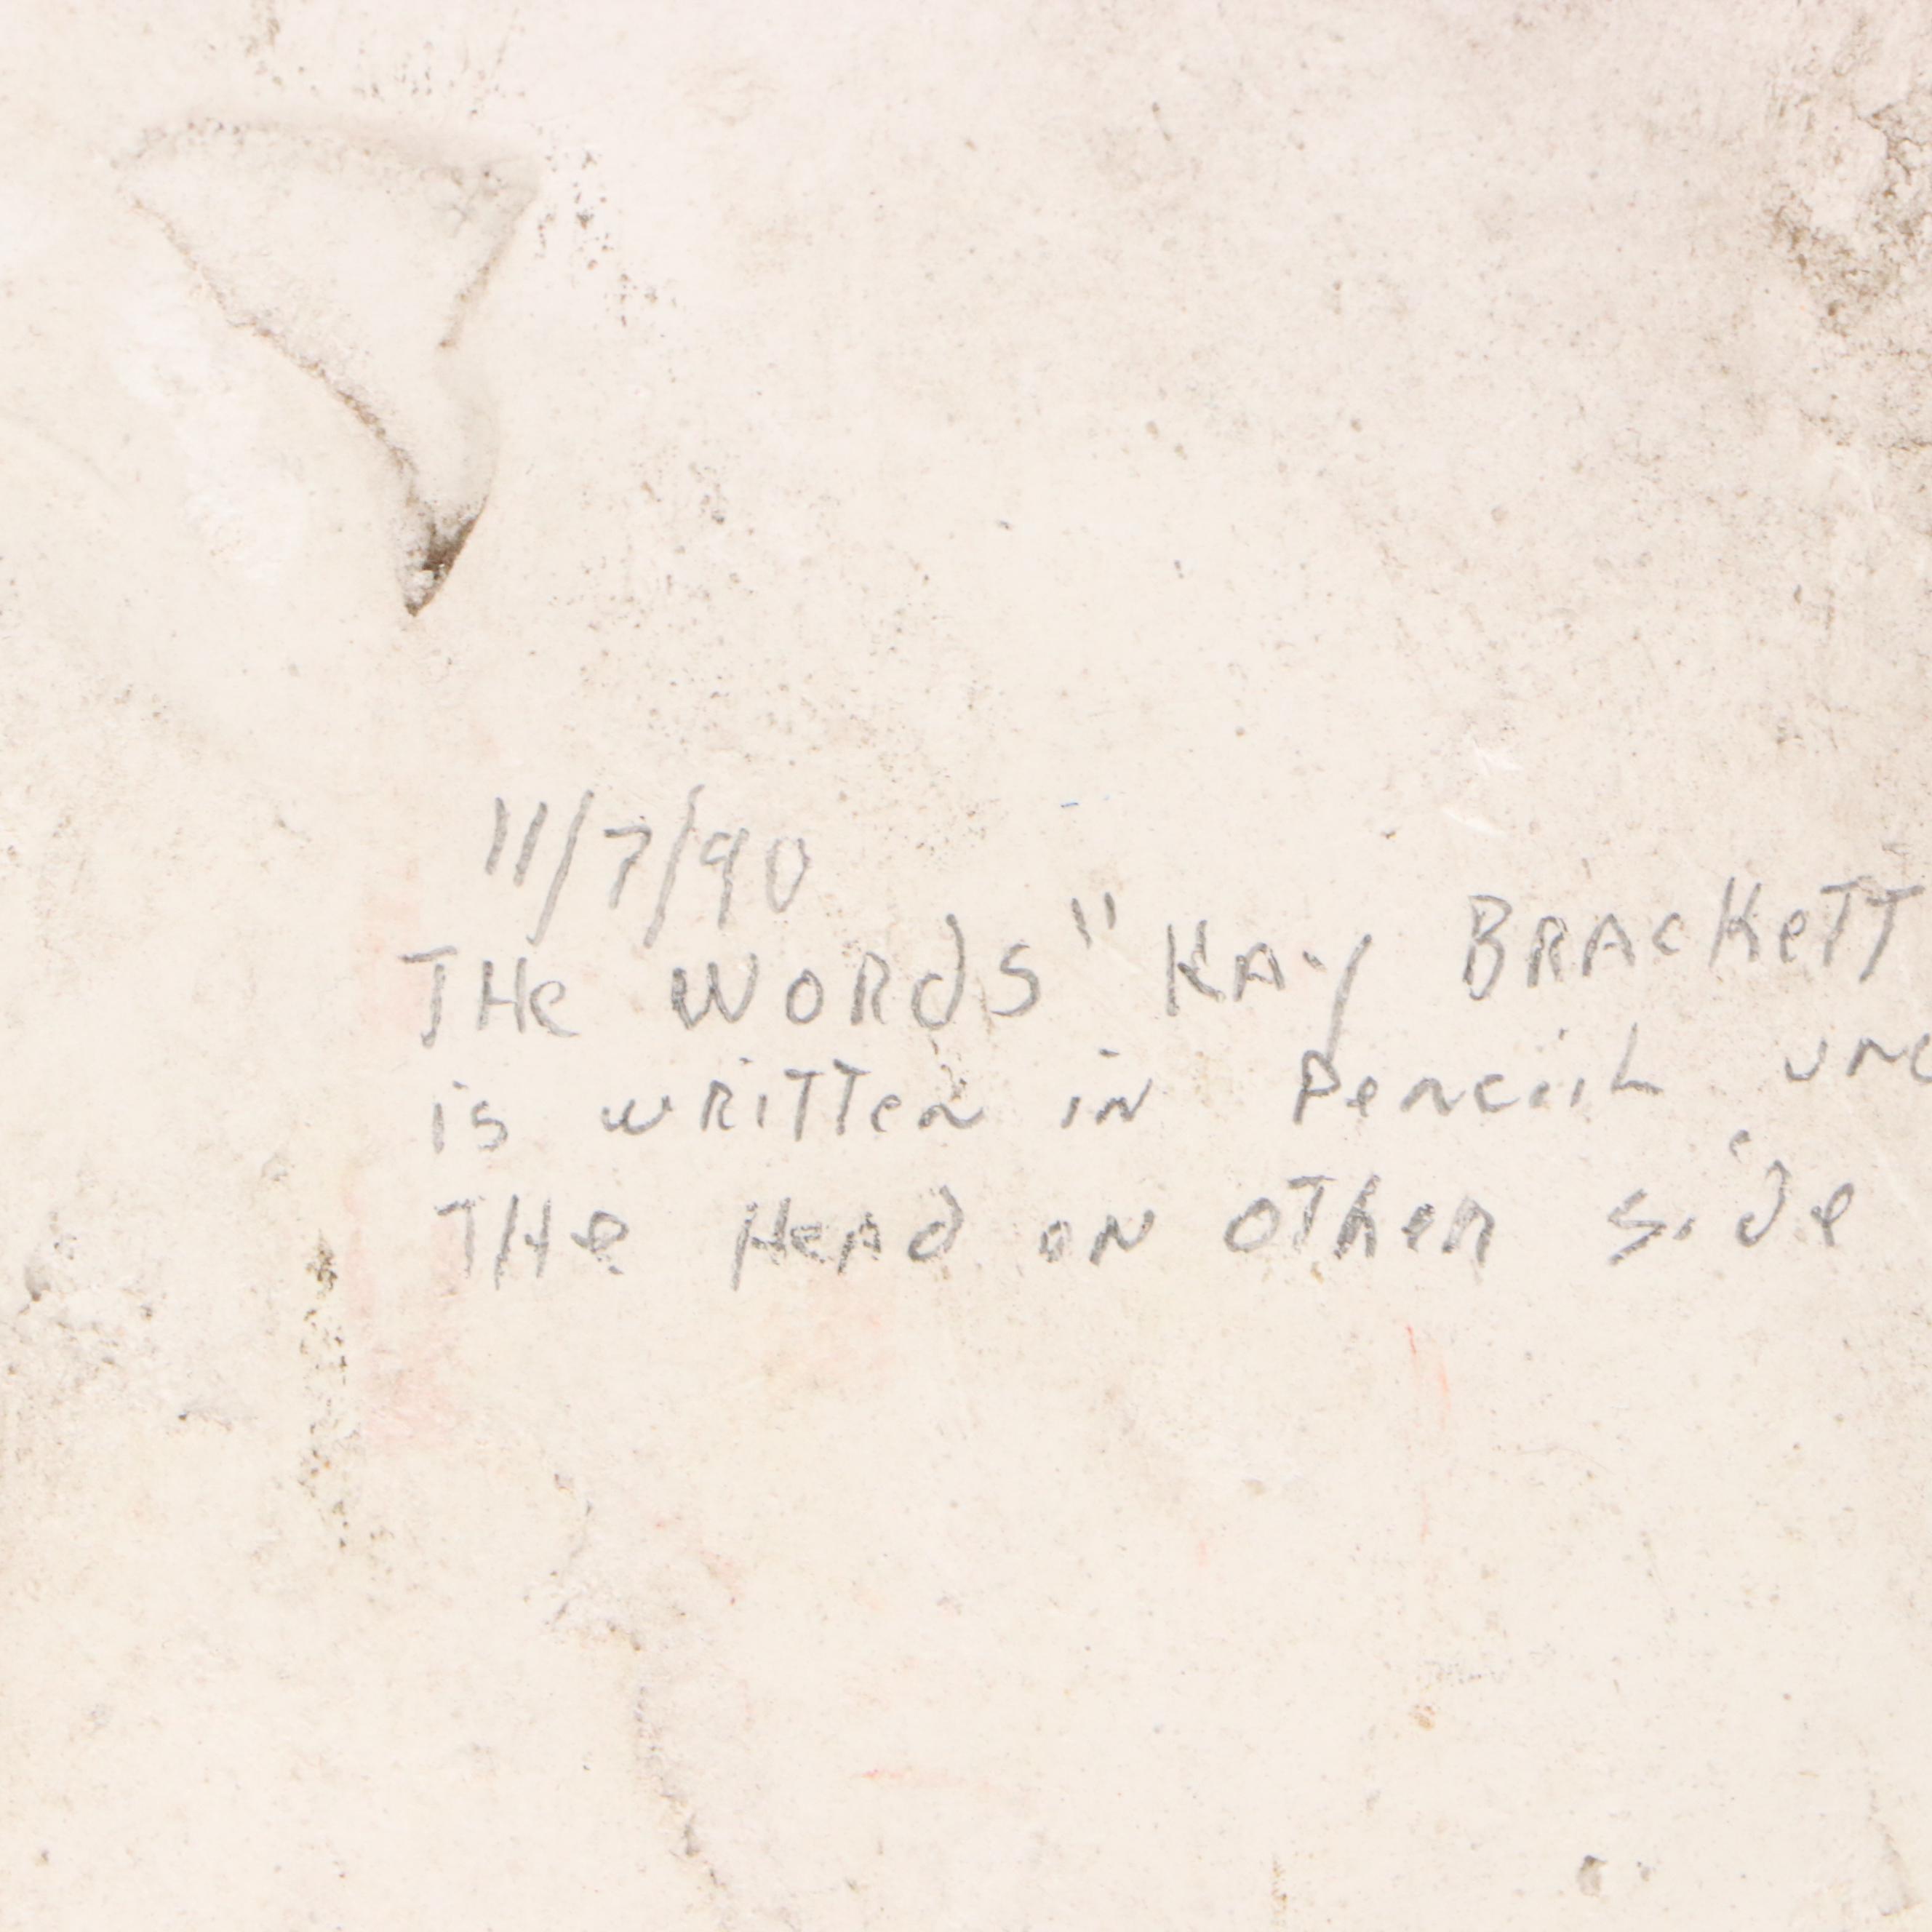 11/7/90
THe WORdS "KAy BRAcKeTT
is wRiTTen in Penciil
THe HeAd on OTher side